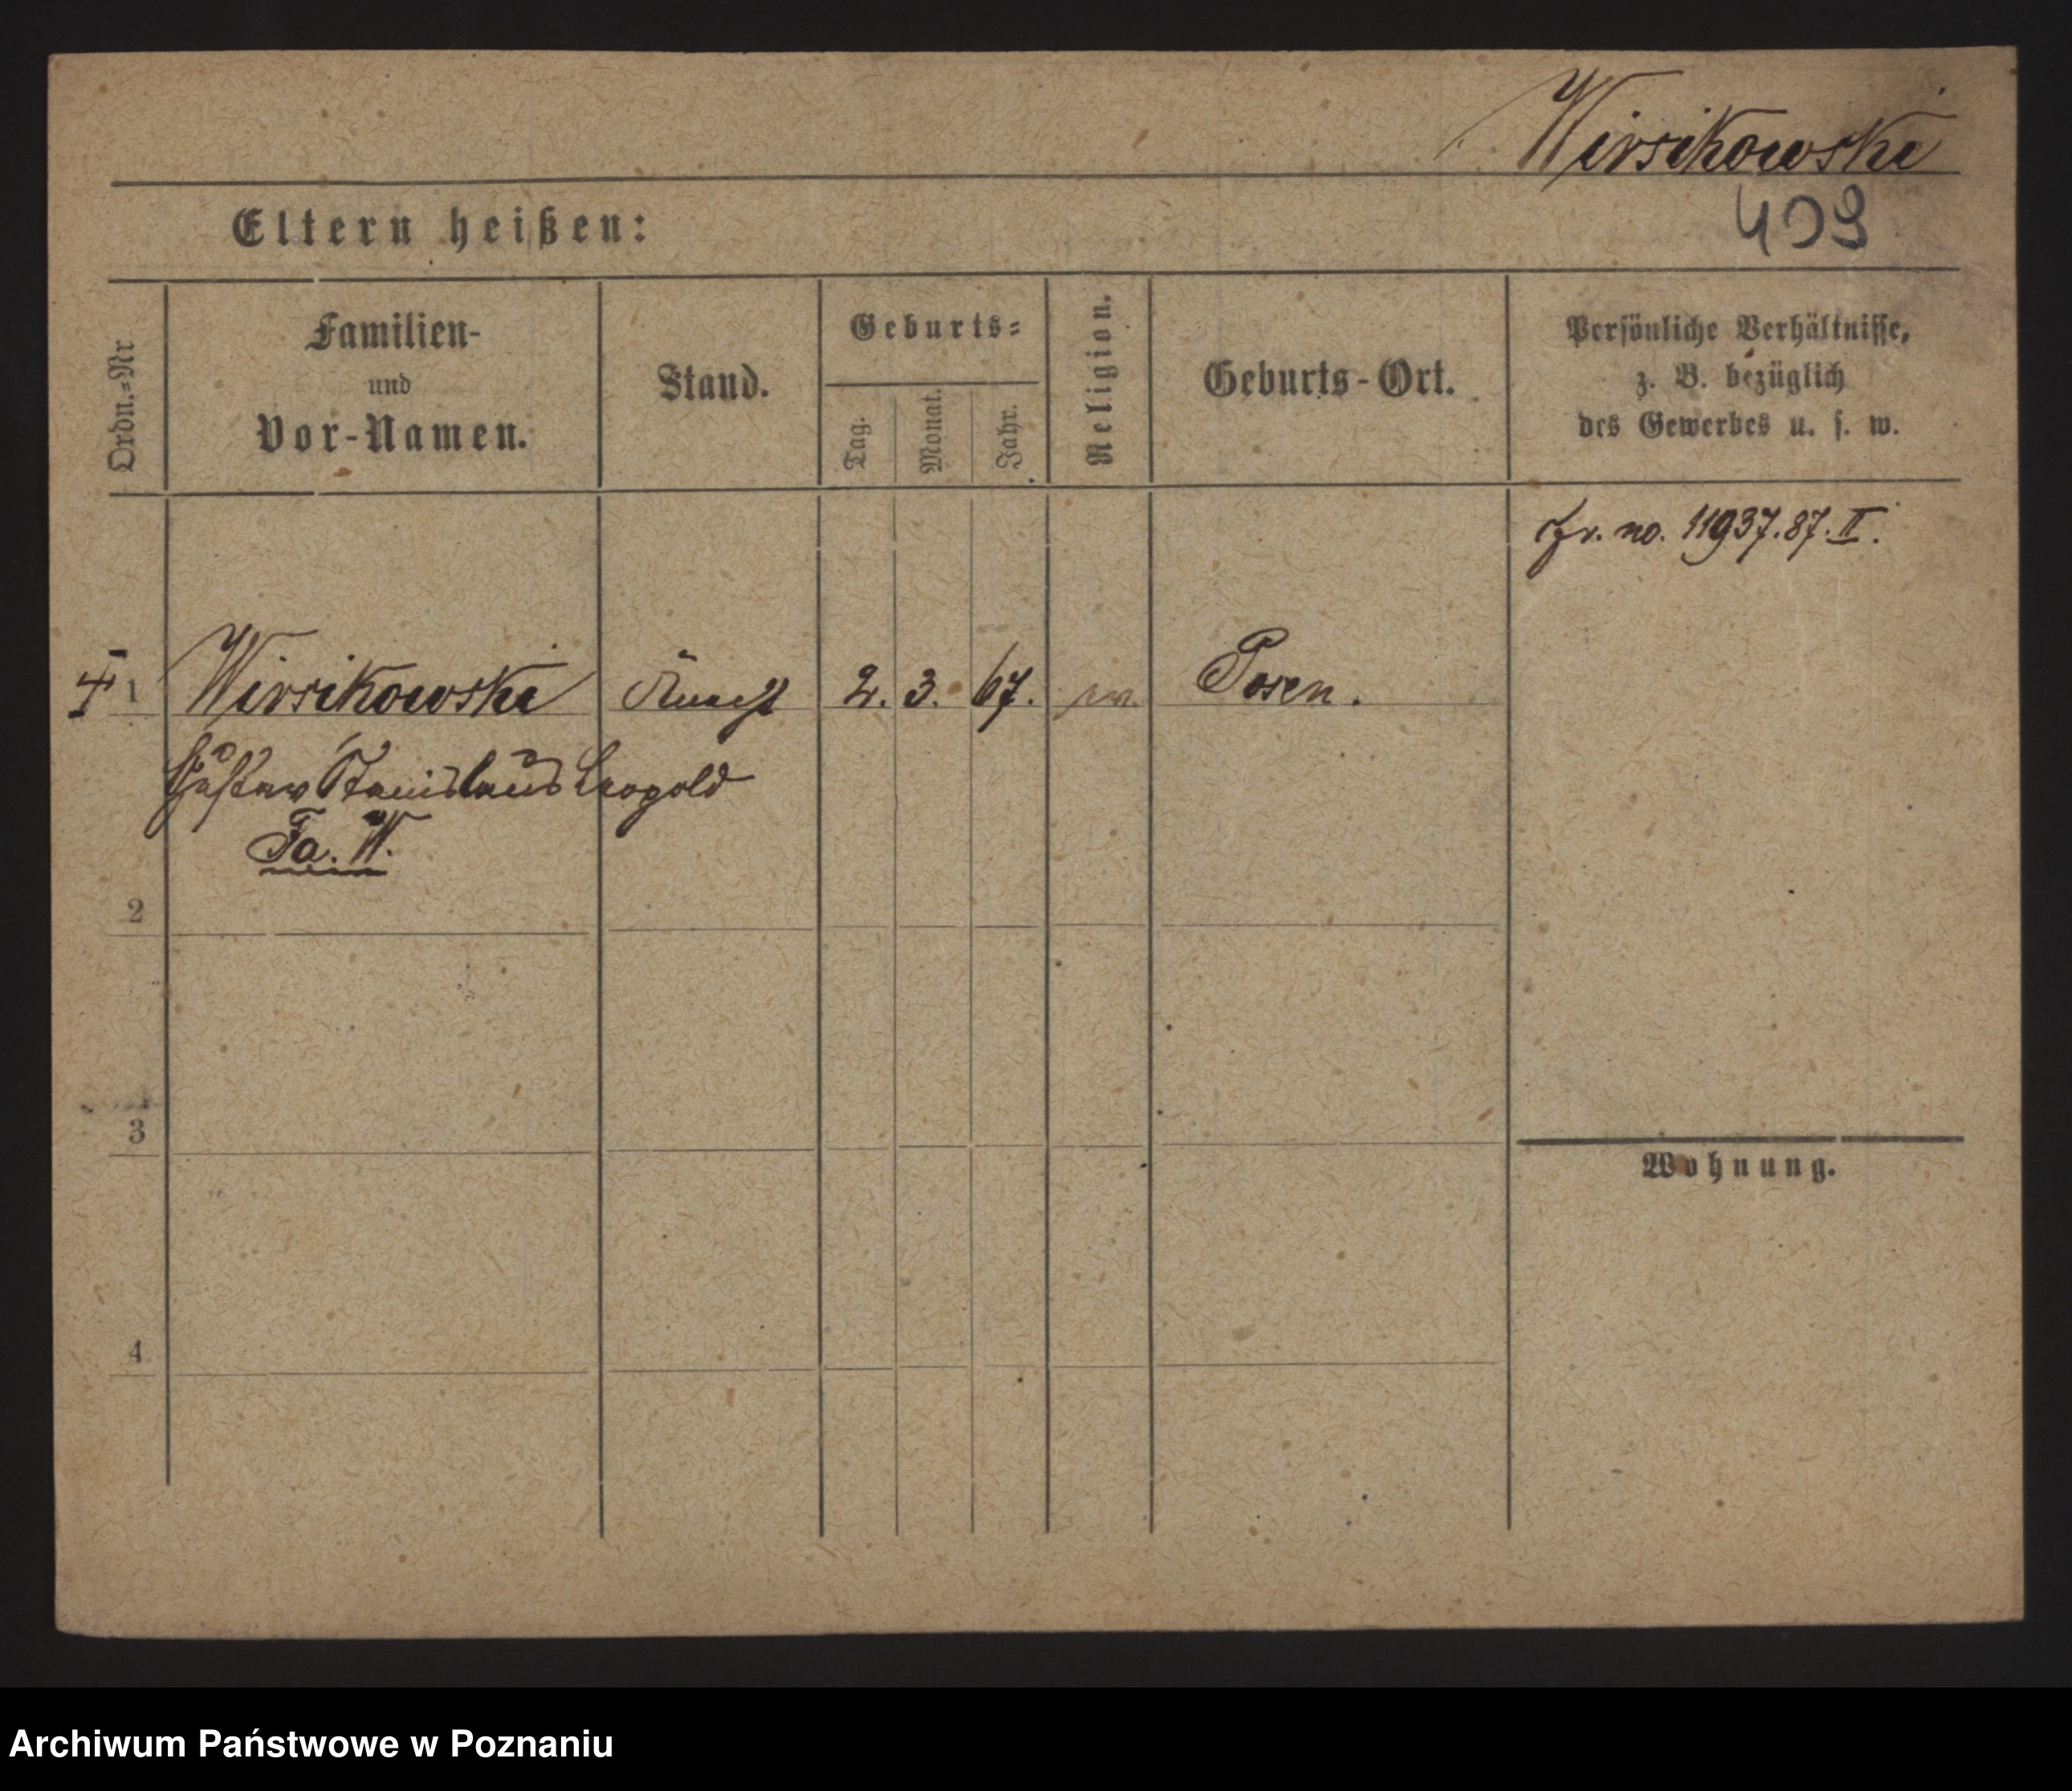 Wirsikowski
409
Eltern heißen:
Ordn.=Nr
Familien-
und
Vor-Namen.
Stand.
Geburts=
Tag.
Monat.
Jahr.
Religion.
Geburts-Ort.
Persönliche Verhältnisse,
z. B. bezüglich
des Gewerbes u. s. w.
no. 11937.87.II.
1 Wirsikowski Knecht 2. 3. 67. Posen.
Gustav Stanislaus Leopold
Fa. W.
2
3
Wohnung.
4
Archiwum Państwowe w Poznaniu